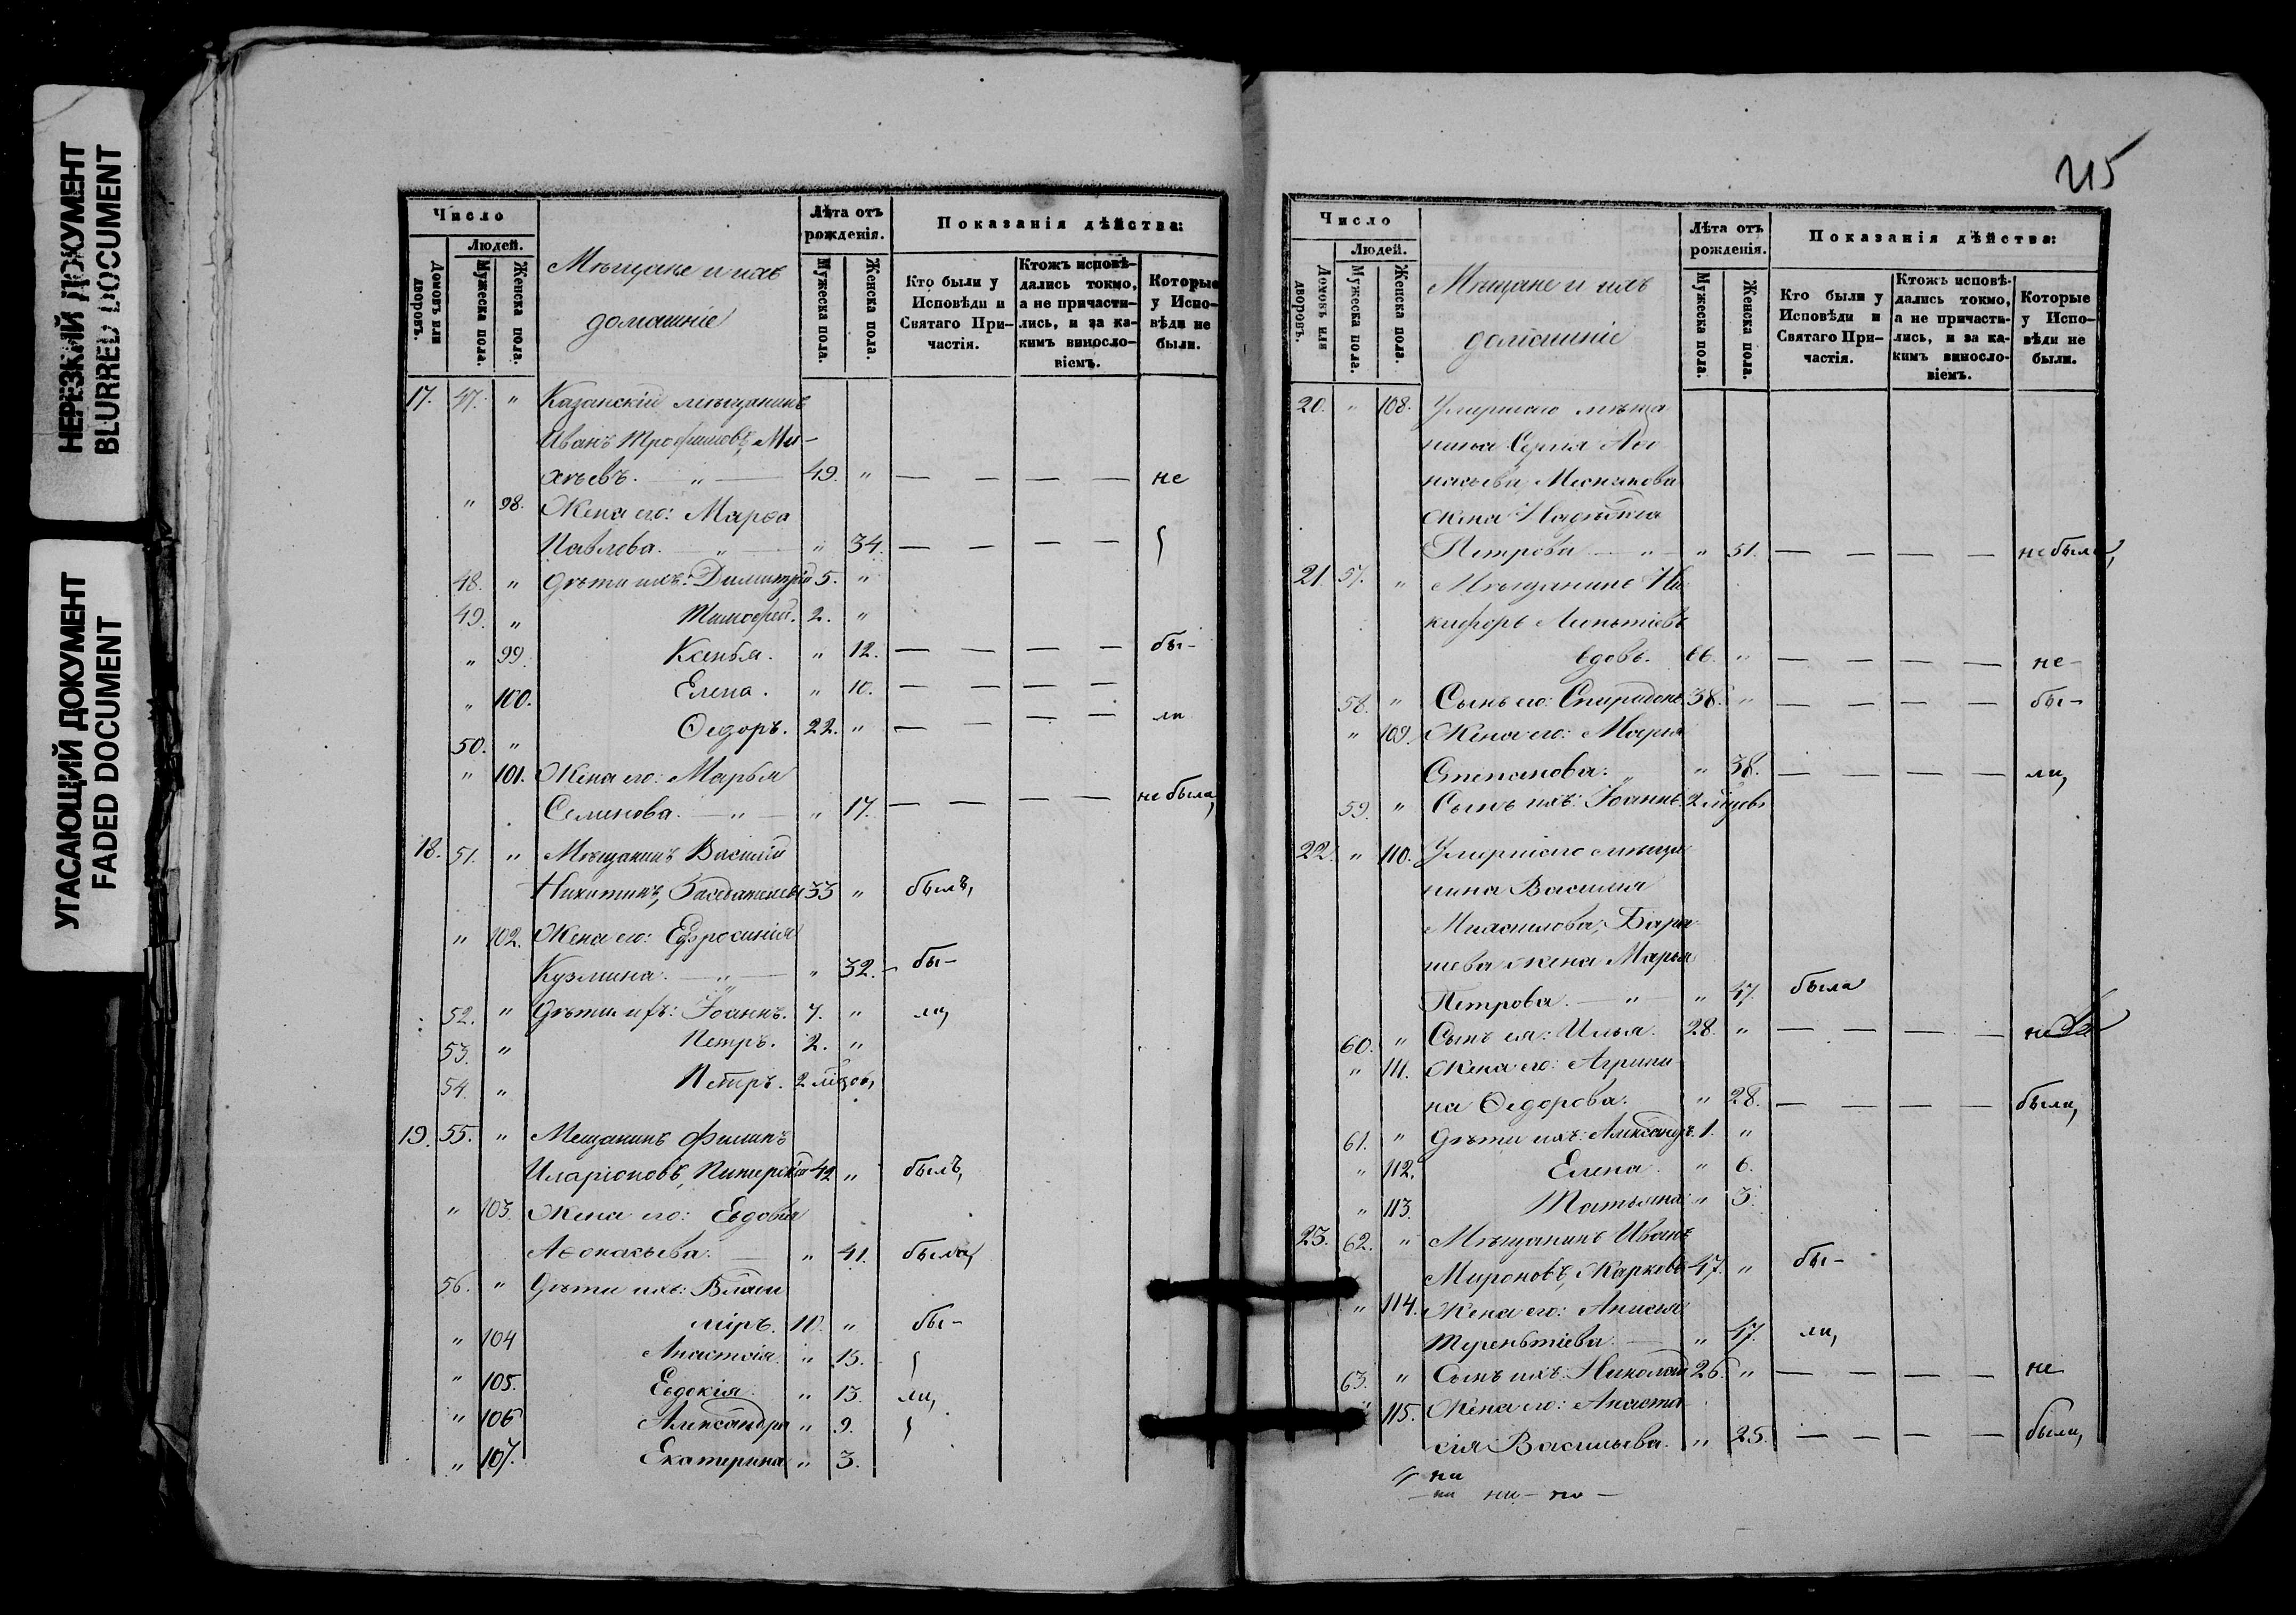 НЕРЕЗКИЙ ДОКУМЕНТ
BLURRED DOCUMENT
УГАСАЮЩИЙ ДОКУМЕНТ
FADED DOCUMENT
Число
Людей.
Домовъ или дворовъ.
Мужеска пола.
Женска пола.
Мѣщане и ихъ
домашніе
Лѣта отъ
рожденія.
Мужеска пола.
Женска пола.
Показанія дѣйства:
Кто были у
Исповѣди и
Святаго При-
частія.
Ктожъ исповѣ-
дались токмо,
а не причасти-
лись, и за ка-
кимъ виносло-
віемъ.
Которые
у Испо-
вѣди не
были.
17. 47. " Казанскій мѣщанинъ
Иванъ Трофимовъ, Ми-
хѣевъ. " 49. " — — — — не
" 98. Жена его: Марѳа
Павлова. — " — " 34. — — — —
48. " Дѣти ихъ: Димитрій 5. "
49. " Тимофей. 2. "
" 99. Ксенья. " 12. — — — — бы-
" 100. Елена. " 10. — — — —
50. " Ѳедоръ. 22. " — — — ли
" 101. Жена его: Марья
Семенова. — " — " 17. — — — — не была,
18. 51. " Мѣщанинъ Василій
Никитинъ, 33 " былъ,
" 102. Жена его: Ефросинія
Кузмина. — " — " 32. — бы-
52. " Дѣти ихъ: Іоаннъ. 7. " ли,
53. " Петръ. 2. "
54. " Петръ. 2 мѣсяцов,
19. 55. " Мещанинъ Филипъ
Иларіоновъ, 42 " былъ,
" 103. Жена его: Евдокія
Аѳонасьева. — " 41. была,
56. " Дѣти ихъ: Влади
міръ. 11. " бы-
" 104 Анастасія. " 15.
" 105. Евдокія. " 13. ли,
" 106 Александра " 9.
" 107. Екатерина " 3.
215
Число
Людей.
Домовъ или дворовъ.
Мужеска пола.
Женска пола.
Мѣщане и ихъ
домашніе
Лѣта отъ
рожденія.
Мужеска пола.
Женска пола.
Показанія дѣйства:
Кто были у
Исповѣди и
Святаго При-
частія.
Ктожъ исповѣ-
дались токмо,
а не причасти-
лись, и за ка-
кимъ виносло-
віемъ.
Которые
у Испо-
вѣди не
были.
20. " 108. Умершаго мѣща
нина Сергія Аѳо
насьева,
жена
Петрова — " — " 51. — — — — не была,
21. 57. " Мѣщанинъ Ни
кифоръ
вдовъ. 66. " — — — — не-
58. " Сынъ его: Спиридонъ 38. " — — — — бы-
" 109. Жена его: Марья
Степанова: " " 38. — — — — ли,
59. " Сынъ ихъ: Іоаннъ. 2 мѣсяцовъ
22. " 110. Умершаго мѣща
нина Василья
жена Марья
Петрова. — " — " 47. была
60. " Сынъ ея: Илья. 28. " — — — — не
" 111. Жена его: Агрипи-
на Ѳедорова. " 28. — — — — были,
61. " Дѣти ихъ: Александръ. 1. "
" 112. Елена. " 6.
" 113. Татьяна " 3.
23. 62. " Мѣщанинъ Иванъ
Мироновъ, Жарковъ 47. " бы-
" 114. Жена его: Анисья
Терентіева. — " 47. ли,
63. " Сынъ ихъ: Николай 26. " — — — — не
" 115. Жена его: Анаста
сія Васильева. " 25. — — — — были,